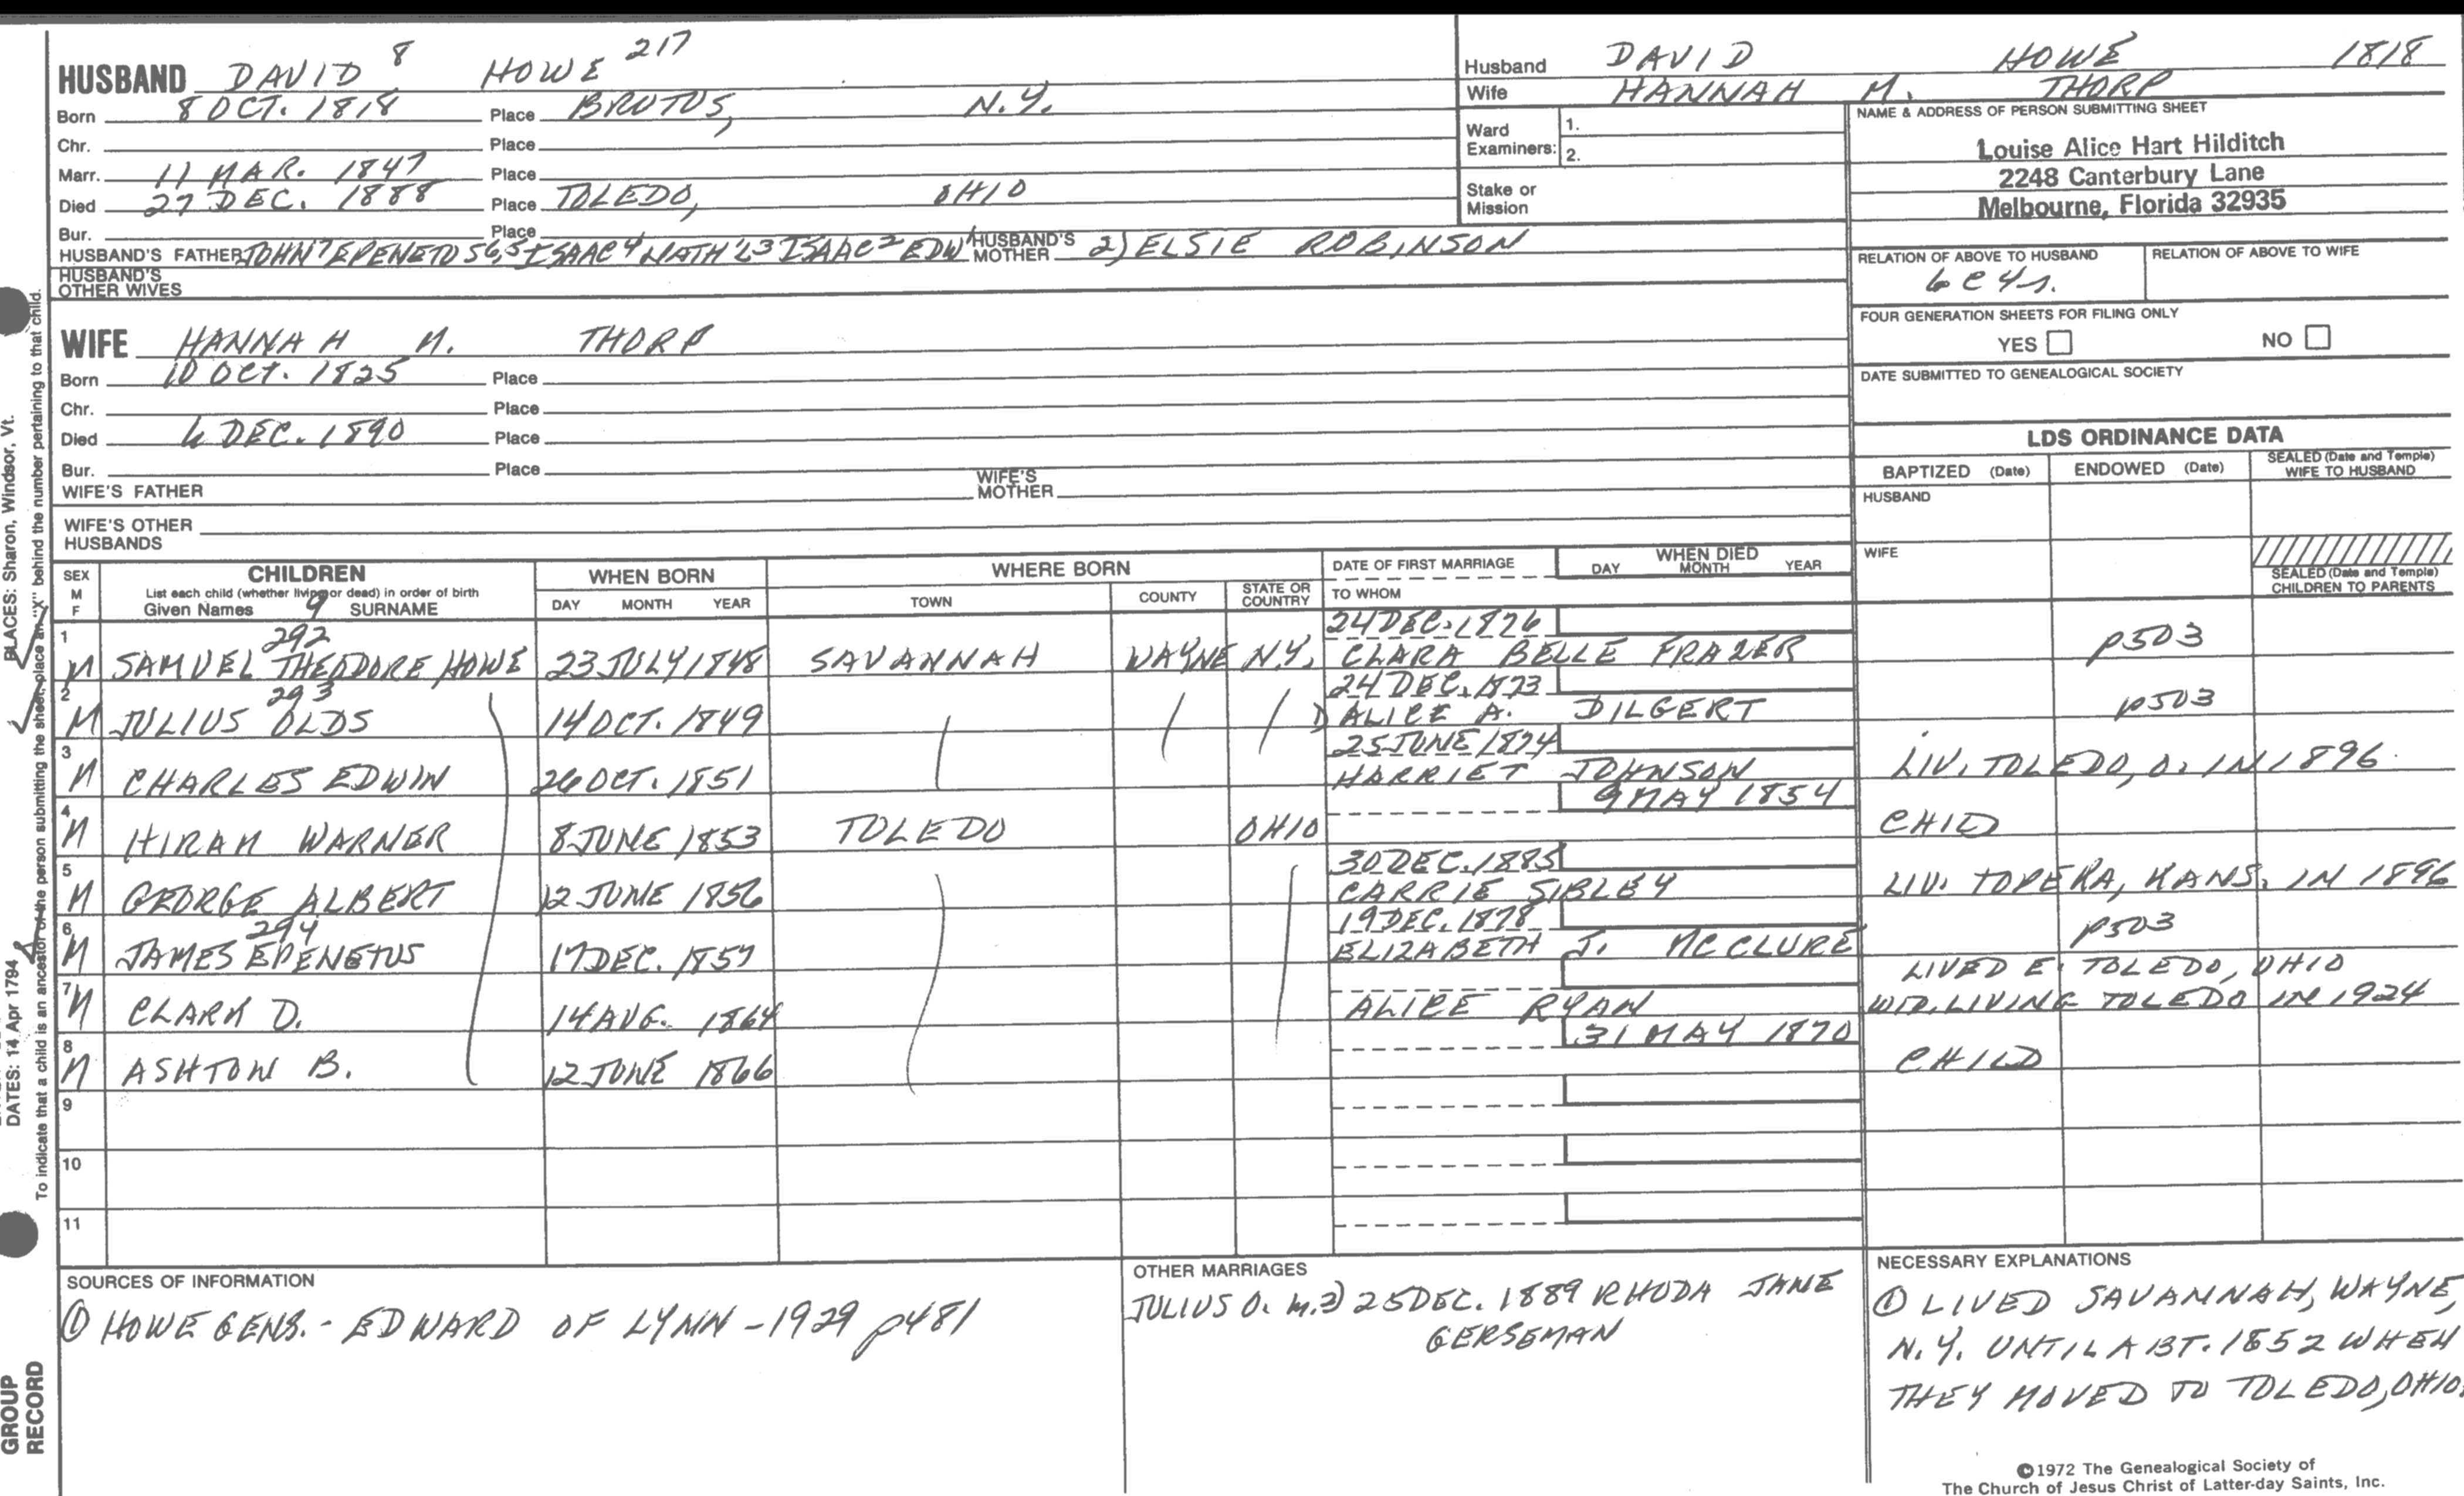 HUSBAND DAVID 8 HOWE 217
Born 8 OCT. 1818 Place BRUTUS, N.Y.
Chr. Place
Marr. 11 MAR. 1847 Place
Died 27 DEC. 1888 Place TOLEDO, OHIO
Bur. Place
HUSBAND'S FATHER JOHN7 EPENETUS6,5 ISAAC4 NATH'L3 ISAAC2 EDW1 HUSBAND'S MOTHER 2) ELSIE ROBINSON
HUSBAND'S OTHER WIVES
WIFE HANNAH M. THORP
Born 10 OCT. 1825 Place
Chr. Place
Died 6 DEC. 1890 Place
Bur. Place
WIFE'S FATHER WIFE'S MOTHER
WIFE'S OTHER HUSBANDS
Husband DAVID HOWE 1818
Wife HANNAH M. THORP
Ward Examiners: 1.
2.
Stake or Mission
NAME & ADDRESS OF PERSON SUBMITTING SHEET
Louise Alice Hart Hilditch
2248 Canterbury Lane
Melbourne, Florida 32935
RELATION OF ABOVE TO HUSBAND RELATION OF ABOVE TO WIFE
6C4r.
FOUR GENERATION SHEETS FOR FILING ONLY
YES NO
DATE SUBMITTED TO GENEALOGICAL SOCIETY
LDS ORDINANCE DATA
BAPTIZED (Date) ENDOWED (Date) SEALED (Date and Temple) WIFE TO HUSBAND
HUSBAND
WIFE
SEALED (Date and Temple) CHILDREN TO PARENTS
SEX M F CHILDREN WHEN BORN WHERE BORN DATE OF FIRST MARRIAGE WHEN DIED
List each child (whether living or dead) in order of birth
Given Names 9 SURNAME DAY MONTH YEAR TOWN COUNTY STATE OR COUNTRY TO WHOM DAY MONTH YEAR
1 292 24 DEC. 1876
M SAMUEL THEODORE HOWE 23 JULY 1848 SAVANNAH WAYNE N.Y. CLARA BELLE FRAZER p503
2 293 24 DEC. 1873
M JULIUS OLDS 14 OCT. 1849 1) ALICE A. DILGERT p503
3 25 JUNE 1874
M CHARLES EDWIN 26 OCT. 1851 HARRIET JOHNSON LIV. TOLEDO, O. IN 1896
4 9 MAY 1854
M HIRAM WARNER 8 JUNE 1853 TOLEDO OHIO CHILD
5 30 DEC. 1885
M GEORGE ALBERT 12 JUNE 1856 CARRIE SIBLEY LIV. TOPEKA, KANS. IN 1896
6 294 19 DEC. 1878
M JAMES EPENETUS 17 DEC. 1857 ELIZABETH J. MCCLURE p503
7 LIVED E. TOLEDO, OHIO
M CLARK D. 14 AUG. 1864 ALICE RYAN WID. LIVING TOLEDO IN 1924
8 31 MAY 1870
M ASHTON B. 12 JUNE 1866 CHILD
9
10
11
SOURCES OF INFORMATION
① HOWE GENS. - EDWARD OF LYNN - 1929 p481
OTHER MARRIAGES
JULIUS O. m. 2) 25 DEC. 1889 RHODA JANE
GERSEMAN
NECESSARY EXPLANATIONS
① LIVED SAVANNAH, WAYNE,
N.Y. UNTIL ABT. 1852 WHEN
THEY MOVED TO TOLEDO, OHIO.
©1972 The Genealogical Society of
The Church of Jesus Christ of Latter-day Saints, Inc.
PLACES: Sharon, Windsor, Vt.
DATES: 14 Apr 1794
To indicate that a child is an ancestor of the person submitting the sheet, place an "X" behind the number pertaining to that child.
GROUP
RECORD